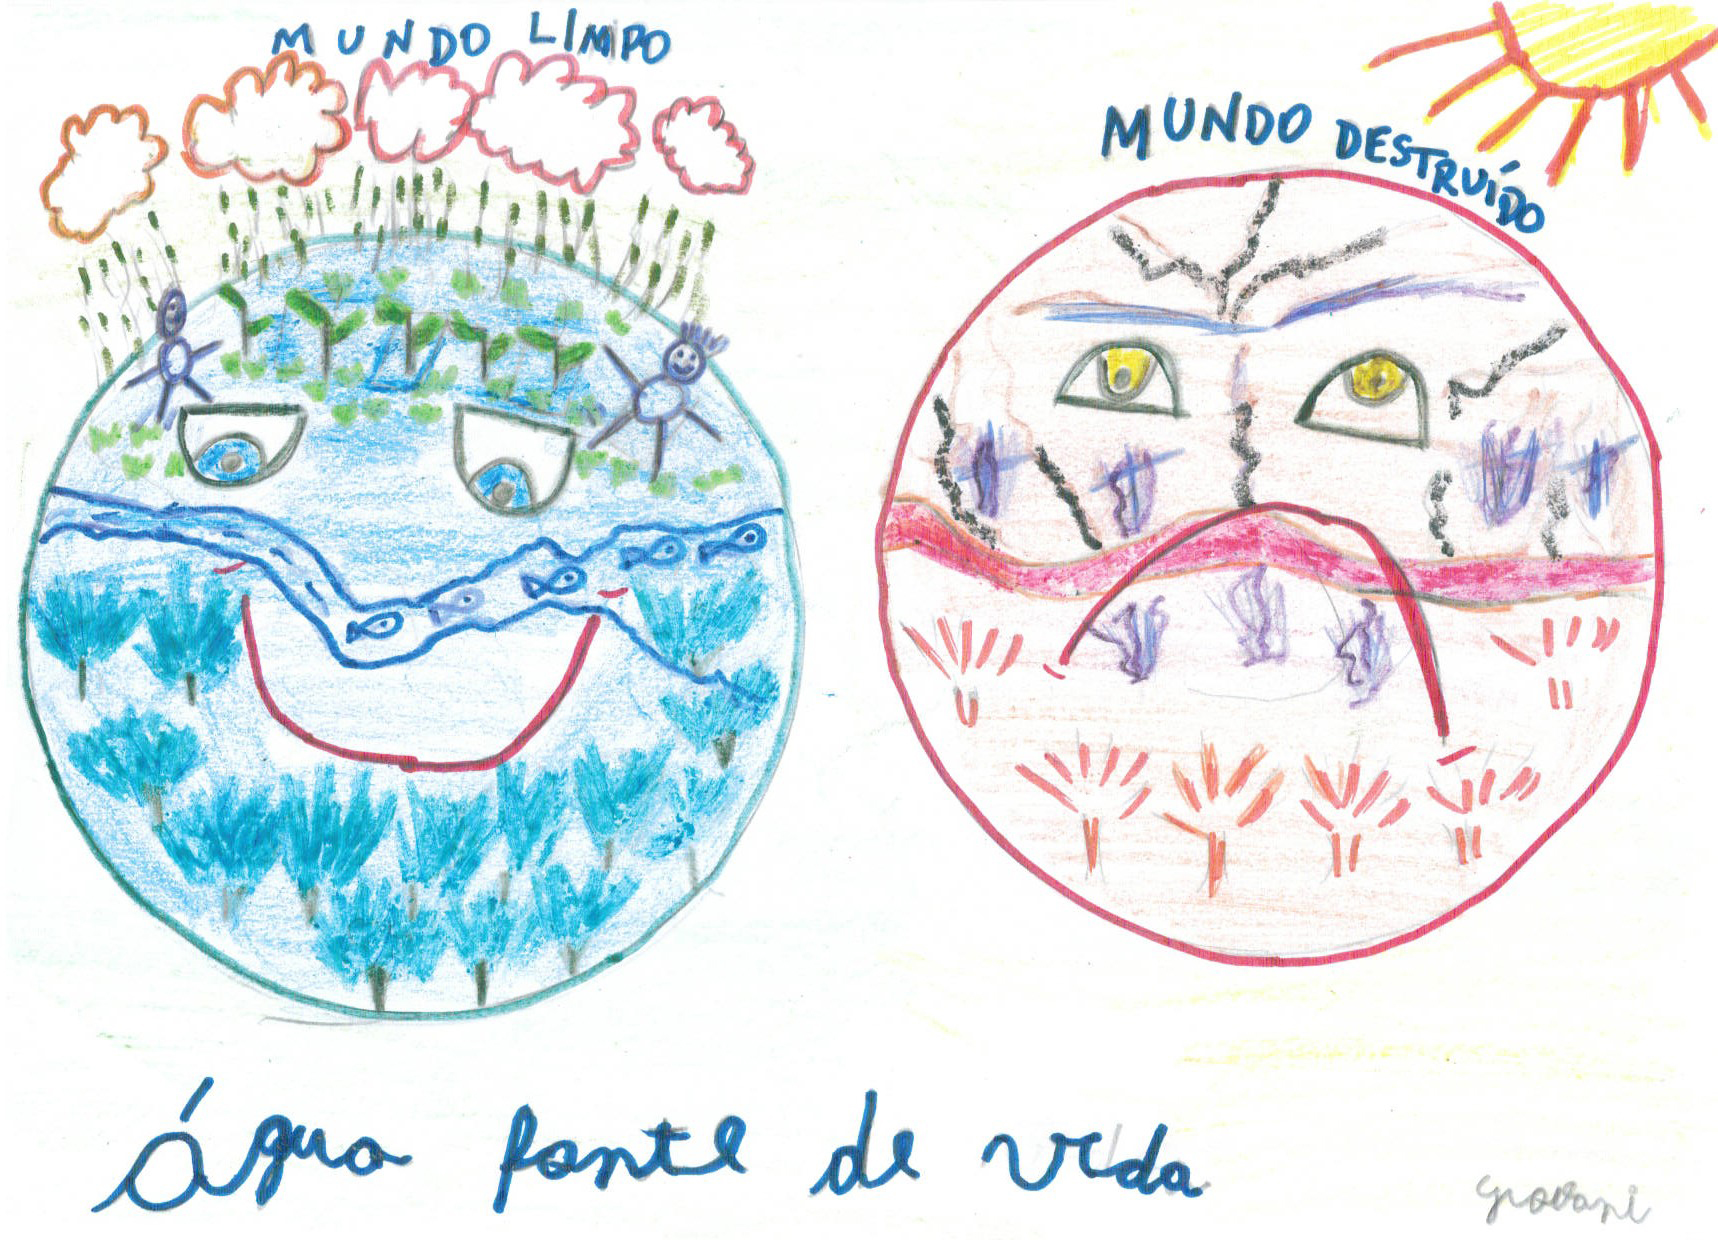 MUNDO LIMPO
MUNDO DESTRUÍDO
Água fonte de vida
Giovani